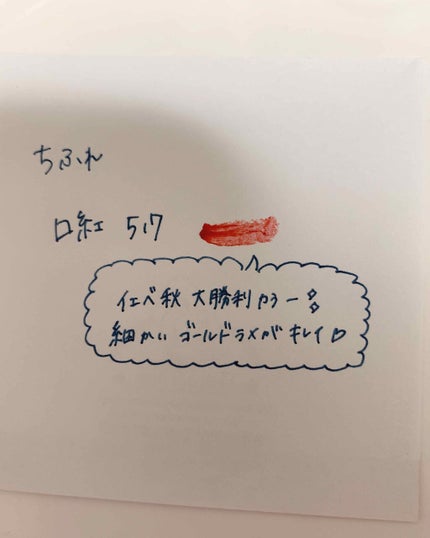 ちふれ
口紅 517
イエベ秋 大勝利カラー
細かい ゴールドラメがキレイ♡